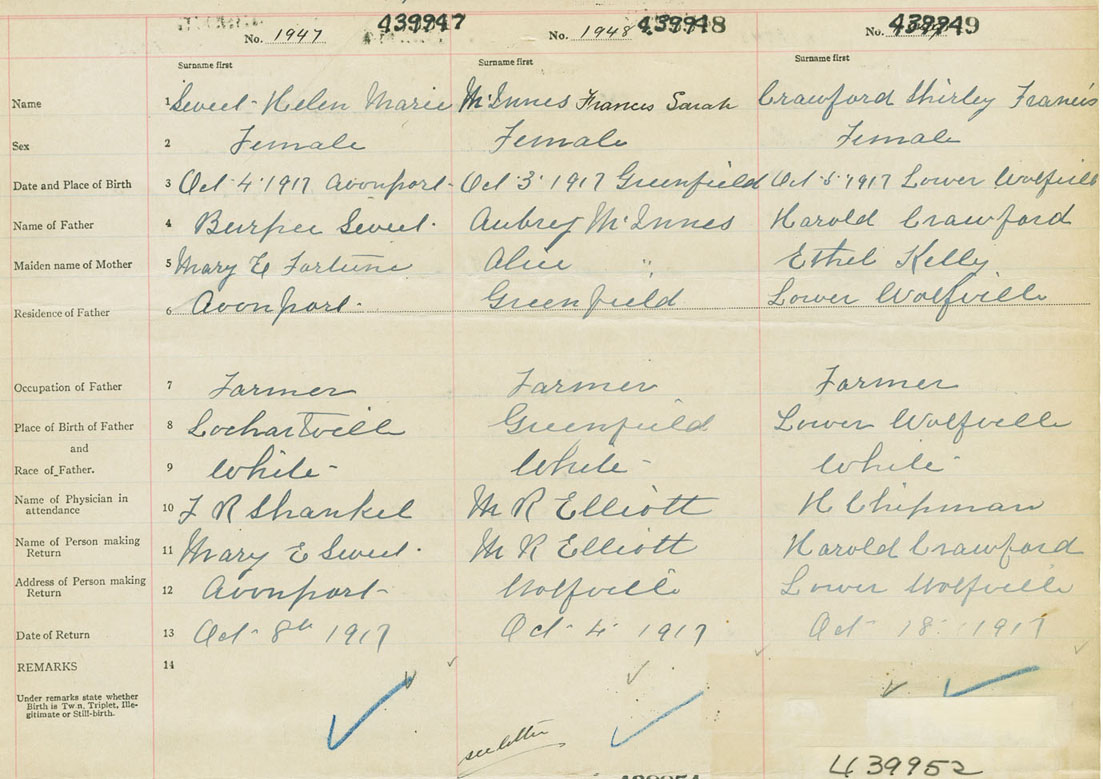 No. 1947 439947 No. 1948 439948 No. 439949
Surname first Surname first Surname first
Name 1 Sweet - Helen Marie McInnes Francis Sarah Crawford Shirley Francis
Sex 2 Female Female Female
Date and Place of Birth 3 Oct 4 1917 Avonport - Oct 3 1917 Greenfield Oct 5 1917 Lower Wolfville
Name of Father 4 Burpee Sweet. Aubrey McInnes Harold Crawford
Maiden name of Mother 5 Mary E Fortune Alice " Ethel Kelly
Residence of Father 6 Avonport. Greenfield Lower Wolfville
Occupation of Father 7 Farmer Farmer Farmer
Place of Birth of Father 8 Lochartville Greenfield Lower Wolfville
and
Race of Father. 9 White - White - White -
Name of Physician in
attendance 10 F R Shankel M R Elliott H Chipman
Name of Person making
Return 11 Mary E Sweet. M R Elliott Harold Crawford
Address of Person making
Return 12 Avonport - Wolfville Lower Wolfville
Date of Return 13 Oct - 8th 1917 Oct - 4 - 1917 Oct - 18 - 1917
REMARKS 14
Under remarks state whether
Birth is Twin, Triplet, Ille-
gitimate or Still-birth.
see letter
439952